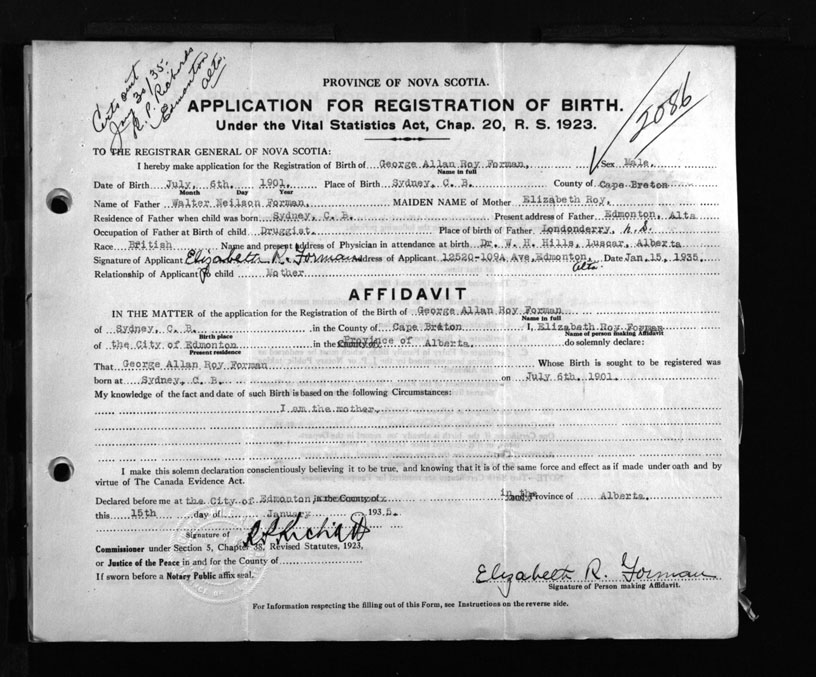 Certs out
Jan 30/35.
R. P. Richards
Edmonton
Alta.
2086
PROVINCE OF NOVA SCOTIA.
APPLICATION FOR REGISTRATION OF BIRTH.
Under the Vital Statistics Act, Chap. 20, R. S. 1923.
TO THE REGISTRAR GENERAL OF NOVA SCOTIA:
I hereby make application for the Registration of Birth of George Allan Roy Forman. Sex Male.
Name in full
Date of Birth July, 6th. 1901. Place of Birth Sydney, C. B. County of Cape Breton
Month Day Year
Name of Father Walter Neilson Forman. MAIDEN NAME of Mother Elizabeth Roy.
Residence of Father when child was born Sydney, C. B. Present address of Father Edmonton, Alta
Occupation of Father at Birth of child Druggist. Place of birth of Father Londonderry, N.S.
Race British Name and present address of Physician in attendance at birth Dr. W. H. Hills, Luscar, Alberta
Signature of Applicant Elizabeth R. Forman Address of Applicant 12520-109A Ave, Edmonton, Alta. Date Jan. 15, 1935.
Relationship of Applicant to child Mother
AFFIDAVIT
IN THE MATTER of the application for the Registration of the Birth of George Allan Roy Forman
Name in full
of Sydney, C. B. in the County of Cape Breton I, Elizabeth Roy Forman
Birth place Name of person making Affidavit
of the City of Edmonton in the County of Province of Alberta. do solemnly declare:
Present residence
That George Allan Roy Forman Whose Birth is sought to be registered was
born at Sydney, C. B. on July 6th. 1901.
My knowledge of the fact and date of such Birth is based on the following Circumstances:
I am the mother.
I make this solemn declaration conscientiously believing it to be true, and knowing that it is of the same force and effect as if made under oath and by
virtue of The Canada Evidence Act.
Declared before me at the City of Edmonton in the County of in the and Province of Alberta.
this 15th day of January 1935.
Signature of R P Richards
Commissioner under Section 5, Chapter 38, Revised Statutes, 1923,
or Justice of the Peace in and for the County of
If sworn before a Notary Public affix seal.
Elizabeth R. Forman
Signature of Person making Affidavit.
For Information respecting the filling out of this Form, see Instructions on the reverse side.